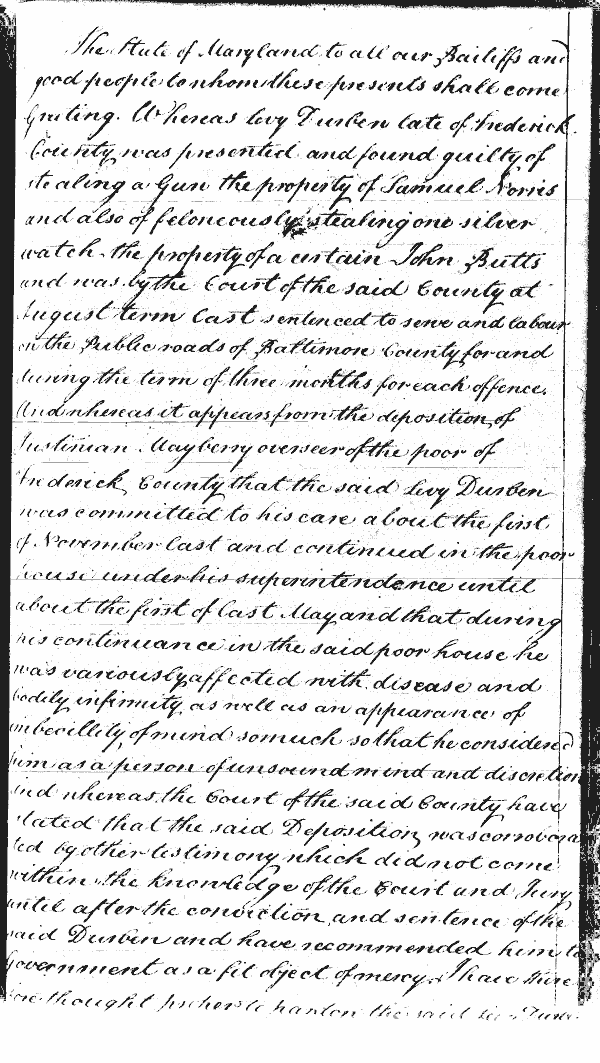 The State of Maryland to all our Bailiffs and
good people to whom these presents shall come
Greting. Whereas Levy Durben late of Frederick
County was presented and found guilty of
stealing a Gun the property of Samuel Norris
and also of feloneously stealing one silver
watch the property of a certain John Butts
and was by the Court of the said County at
August term last sentenced to serve and labour
on the Public roads of Baltimore County for and
during the term of three months for each offence.
And whereas it appears from the deposition of
Justinian Mayberry overseer of the poor of
Frederick County that the said Levy Durben
was committed to his care about the first
of November last and continued in the poor
house under his superintendence until
about the first of last May and that during
his continuance in the said poor house he
was variously affected with disease and
bodily infirmity as well as an appearance of
imbecillity of mind so much so that he considered
him as a person of unsound mind and discretion
And whereas the Court of the said County have
stated that the said Deposition was corrobora
ted by other testimony which did not come
within the knowledge of the Court and Jury
until after the conviction and sentence of the
said Durben and have recommended him to
Government as a fit object of mercy. I have there
fore thought proper to pardon the said Levy Durben